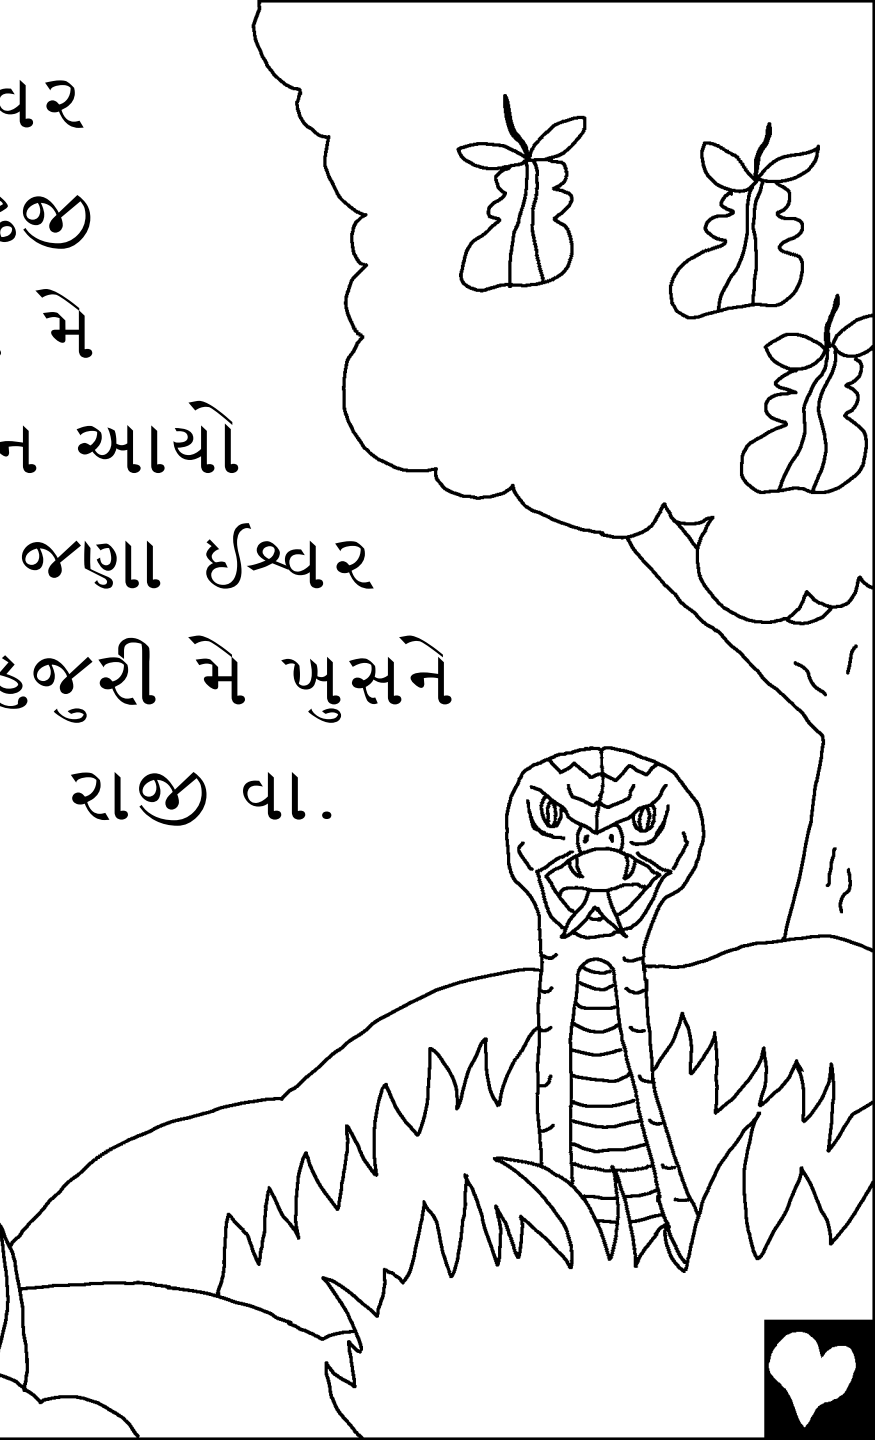 વર
જી
મે
ન આયો
જણા ઈશ્વર
હજુરી મે ખુસને
રાજી વા.